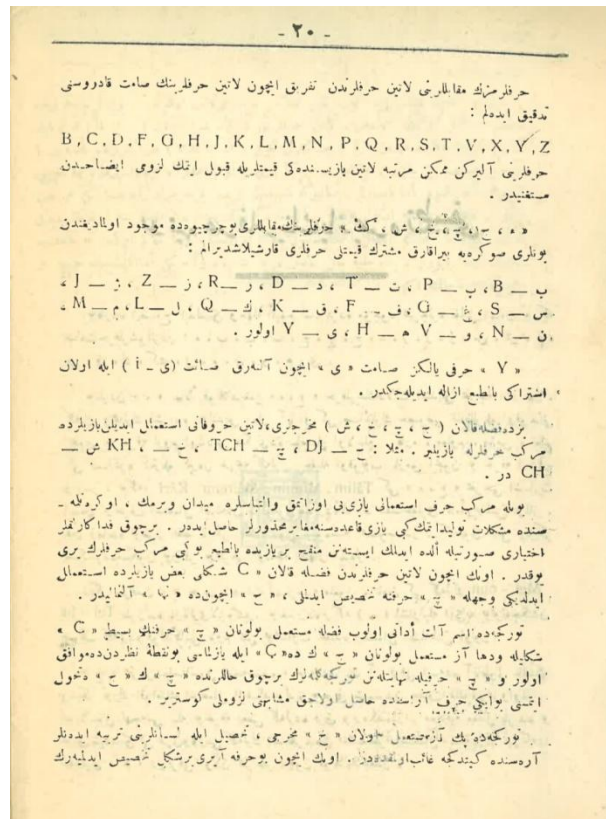 - ٢٠ -
حرفلرمزك مقابللرينى لاتين حرفلرندن تفريق ايچون لاتين حرفلرينك صامت قادروسنى
تدقيق ايده‌لم :
B, C, D, F, G, H, J, K, L, M, N, P, Q, R, S, T, V, X, Y, Z
حرفلرينى آليركن ممكن مرتبه لاتين يازيسنده‌كى قيمتلريله قبول ايتمك لزومى ايضاحدن
مستغنيدر .
حرفلرينك مقابللرى بو چرچيوه‌ده موجود اولماديغندن
بونلرى صوكره‌يه بيراقارق مشترك قيمتلى حرفلرى قارشيلاشديرالم :
ب — B ، پ — P ، ت — T ، د — D ، ر — R ، ز — Z ، ژ — J ،
س — S ، غ — G ، ف — F ، ق — K ، ك — Q ، ل — L ، م — M ،
ن — N ، و — V ه — H ، ى — Y اولور .
« Y » حرفى يالكز صامت « ى » ايچون آلنه‌رق صائت (ى – i ) ايله اولان
اشتراكى بالطبع ازاله ايديله‌جكدر .
بزده فضله قالان ( ج ، چ ، خ ، ش ) مخرجلرى، لاتين حروفاتى استعمال ايديلن يازيلرده
مركب حرفلرله يازيلير . مثلا : ج — DJ ، چ — TCH ، خ — KH ، ش —
CH در .
بويله مركب حرف استعمالى يازى‌يى اوزاتمق والتباسلره ميدان ويرمك ، اوكرنمه –
سنده مشكلات توليد ايتمك كبى يازى قاعده‌سنه مغاير محذورلر حاصل ايدر . برچوق فداكارلقلر
اختيارى صورتيله ألده ايدلمك ايستنه‌ن منقح بر يازيده بالطبع بو كبى مركب حرفلرك يرى
يوقدر . اونك ايچون لاتين حرفلرندن فضله قالان « C شكلى بعض يازيلرده استعمال
ايدلديكى وجهله « چ » حرفنه تخصيص ايدلملى ، « ج » ايچون‌ده آلنماليدر .
توركجه‌ده اسم آلت أداتى اولوب فضله مستعمل بولونان « چ » حرفنك بسيط « C »
شكليله ودها آز مستعمل بولونان « ج » ك ده ايله يازلماسى بو نقطهٔ نظردن ده موافق
اولور و « چ » حرفيله نهايتله‌نن توركجه كله‌لرك برچوق حاللرنده « چ » ك « ج » ه تحول
ايتمسى بو ايكى حرف آراسنده حاصل اولاجق مشابهتى لزوملى كوسترير .
توركجه‌ده پك آز مستعمل اولان « خ » مخرجى ، تحصيل ايله لسانلرينى تربيه ايده‌نلر
آره‌سنده كيتدكجه غائب اولمقده‌در . اونك ايچون بو حرفه آيرى بر شكل تخصيص ايدلميه‌رك